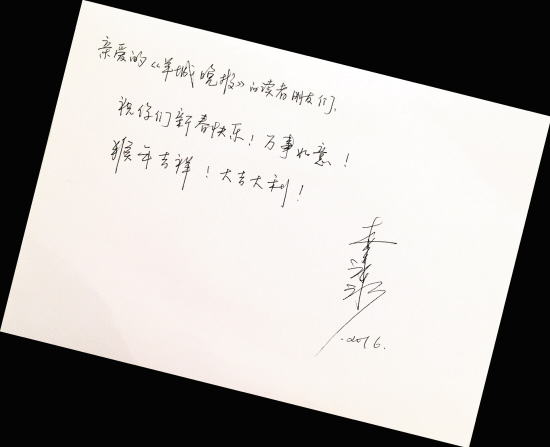 亲爱的《羊城晚报》的读者朋友们,
祝你们新春快乐！万事如意！
猴年吉祥！大吉大利！
2016.